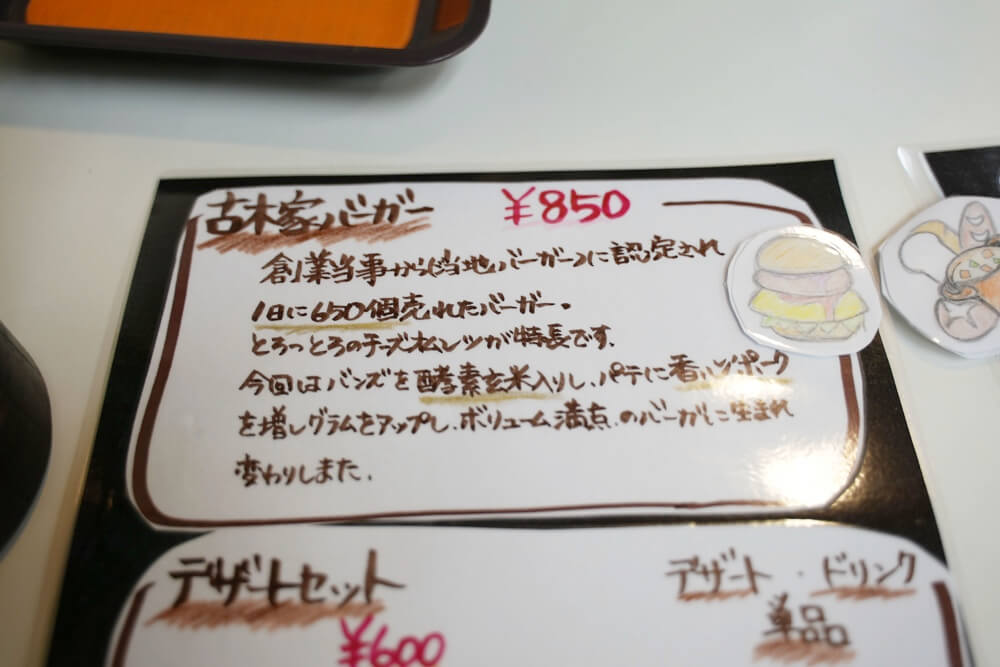 古木家バーガー ¥850
創業当事から(当地バーガー)に認定され
1日に650個売れたバーガー。
とろっとろのチーズオムレツが特長です。
今回はバンズを酵素玄米入りし、パテに香いぶポーク
を増しグラムをアップし、ボリューム満点、のバーガーに生まれ
変わりました。
デザートセット
¥600
デザート・ドリンク
単品